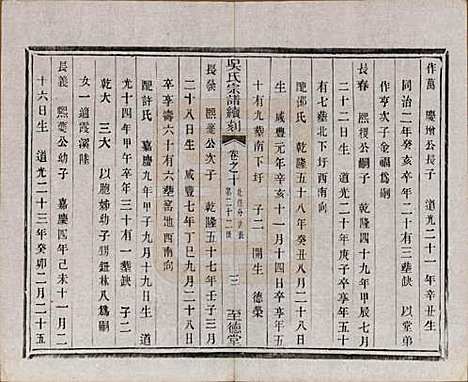 作萬　慶增公長子　道光二十一年辛丑生
同治二年癸亥卒年二十有三葬缺　以堂弟
作亨次子金福爲嗣
長春　熙後公嗣子　乾隆四十九年甲辰七月
二十二日生　道光二十年庚子卒年五十
有七葬北下圩西南向
配邵氏　乾隆五十八年癸丑八月二十八日
生　咸豐元年辛亥十一月十四日卒年五
十有九葬南下圩　子二　開生　德榮
吳氏宗譜續刻
卷之十
第二十二世
三
至德堂
長發　熙毫公次子　乾隆五十七年壬子三月
二十八日生　咸豐七年丁巳九月二十日
卒享壽六十有六葬窰池西南向
配許氏　嘉慶九年甲子九月十九日生　道
光十四年甲午卒年三十有一葬缺　子二
乾大　三大　以胞姊幼子甥鈕林八爲嗣
女一適霞溪陸
長義　熙毫公幼子　嘉慶四年己未十一月二
十六日生　道光二十三年癸卯二月二十五